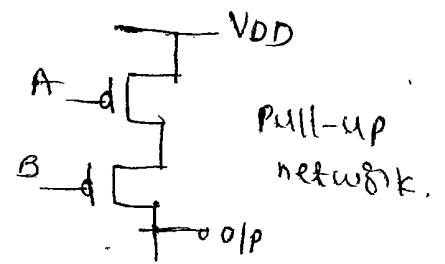 VDD
A
Pull-up
network.
B
O/P